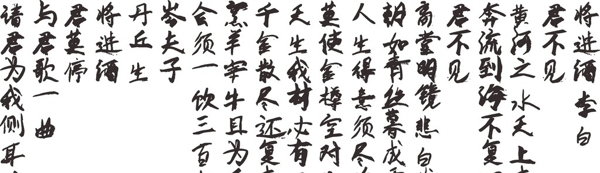 将进酒 李白
君不见
黄河之水天上
奔流到海不复
君不见
高堂明镜悲白
朝如青丝暮成
人生得意须尽
莫使金樽空对
天生我材必有
千金散尽还复
烹羊宰牛且为
会须一饮三百
岑夫子
丹丘生
将进酒
君莫停
与君歌一曲
诸君为我侧耳